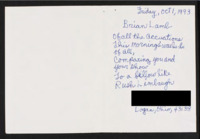 Friday, Oct 1, 1993
Brian Lamb
Of all the accusations
this morning's was worst
of all,
Comparing you and
your show
To a fellow like
Rush Limbaugh
Logan, Ohio, 43138